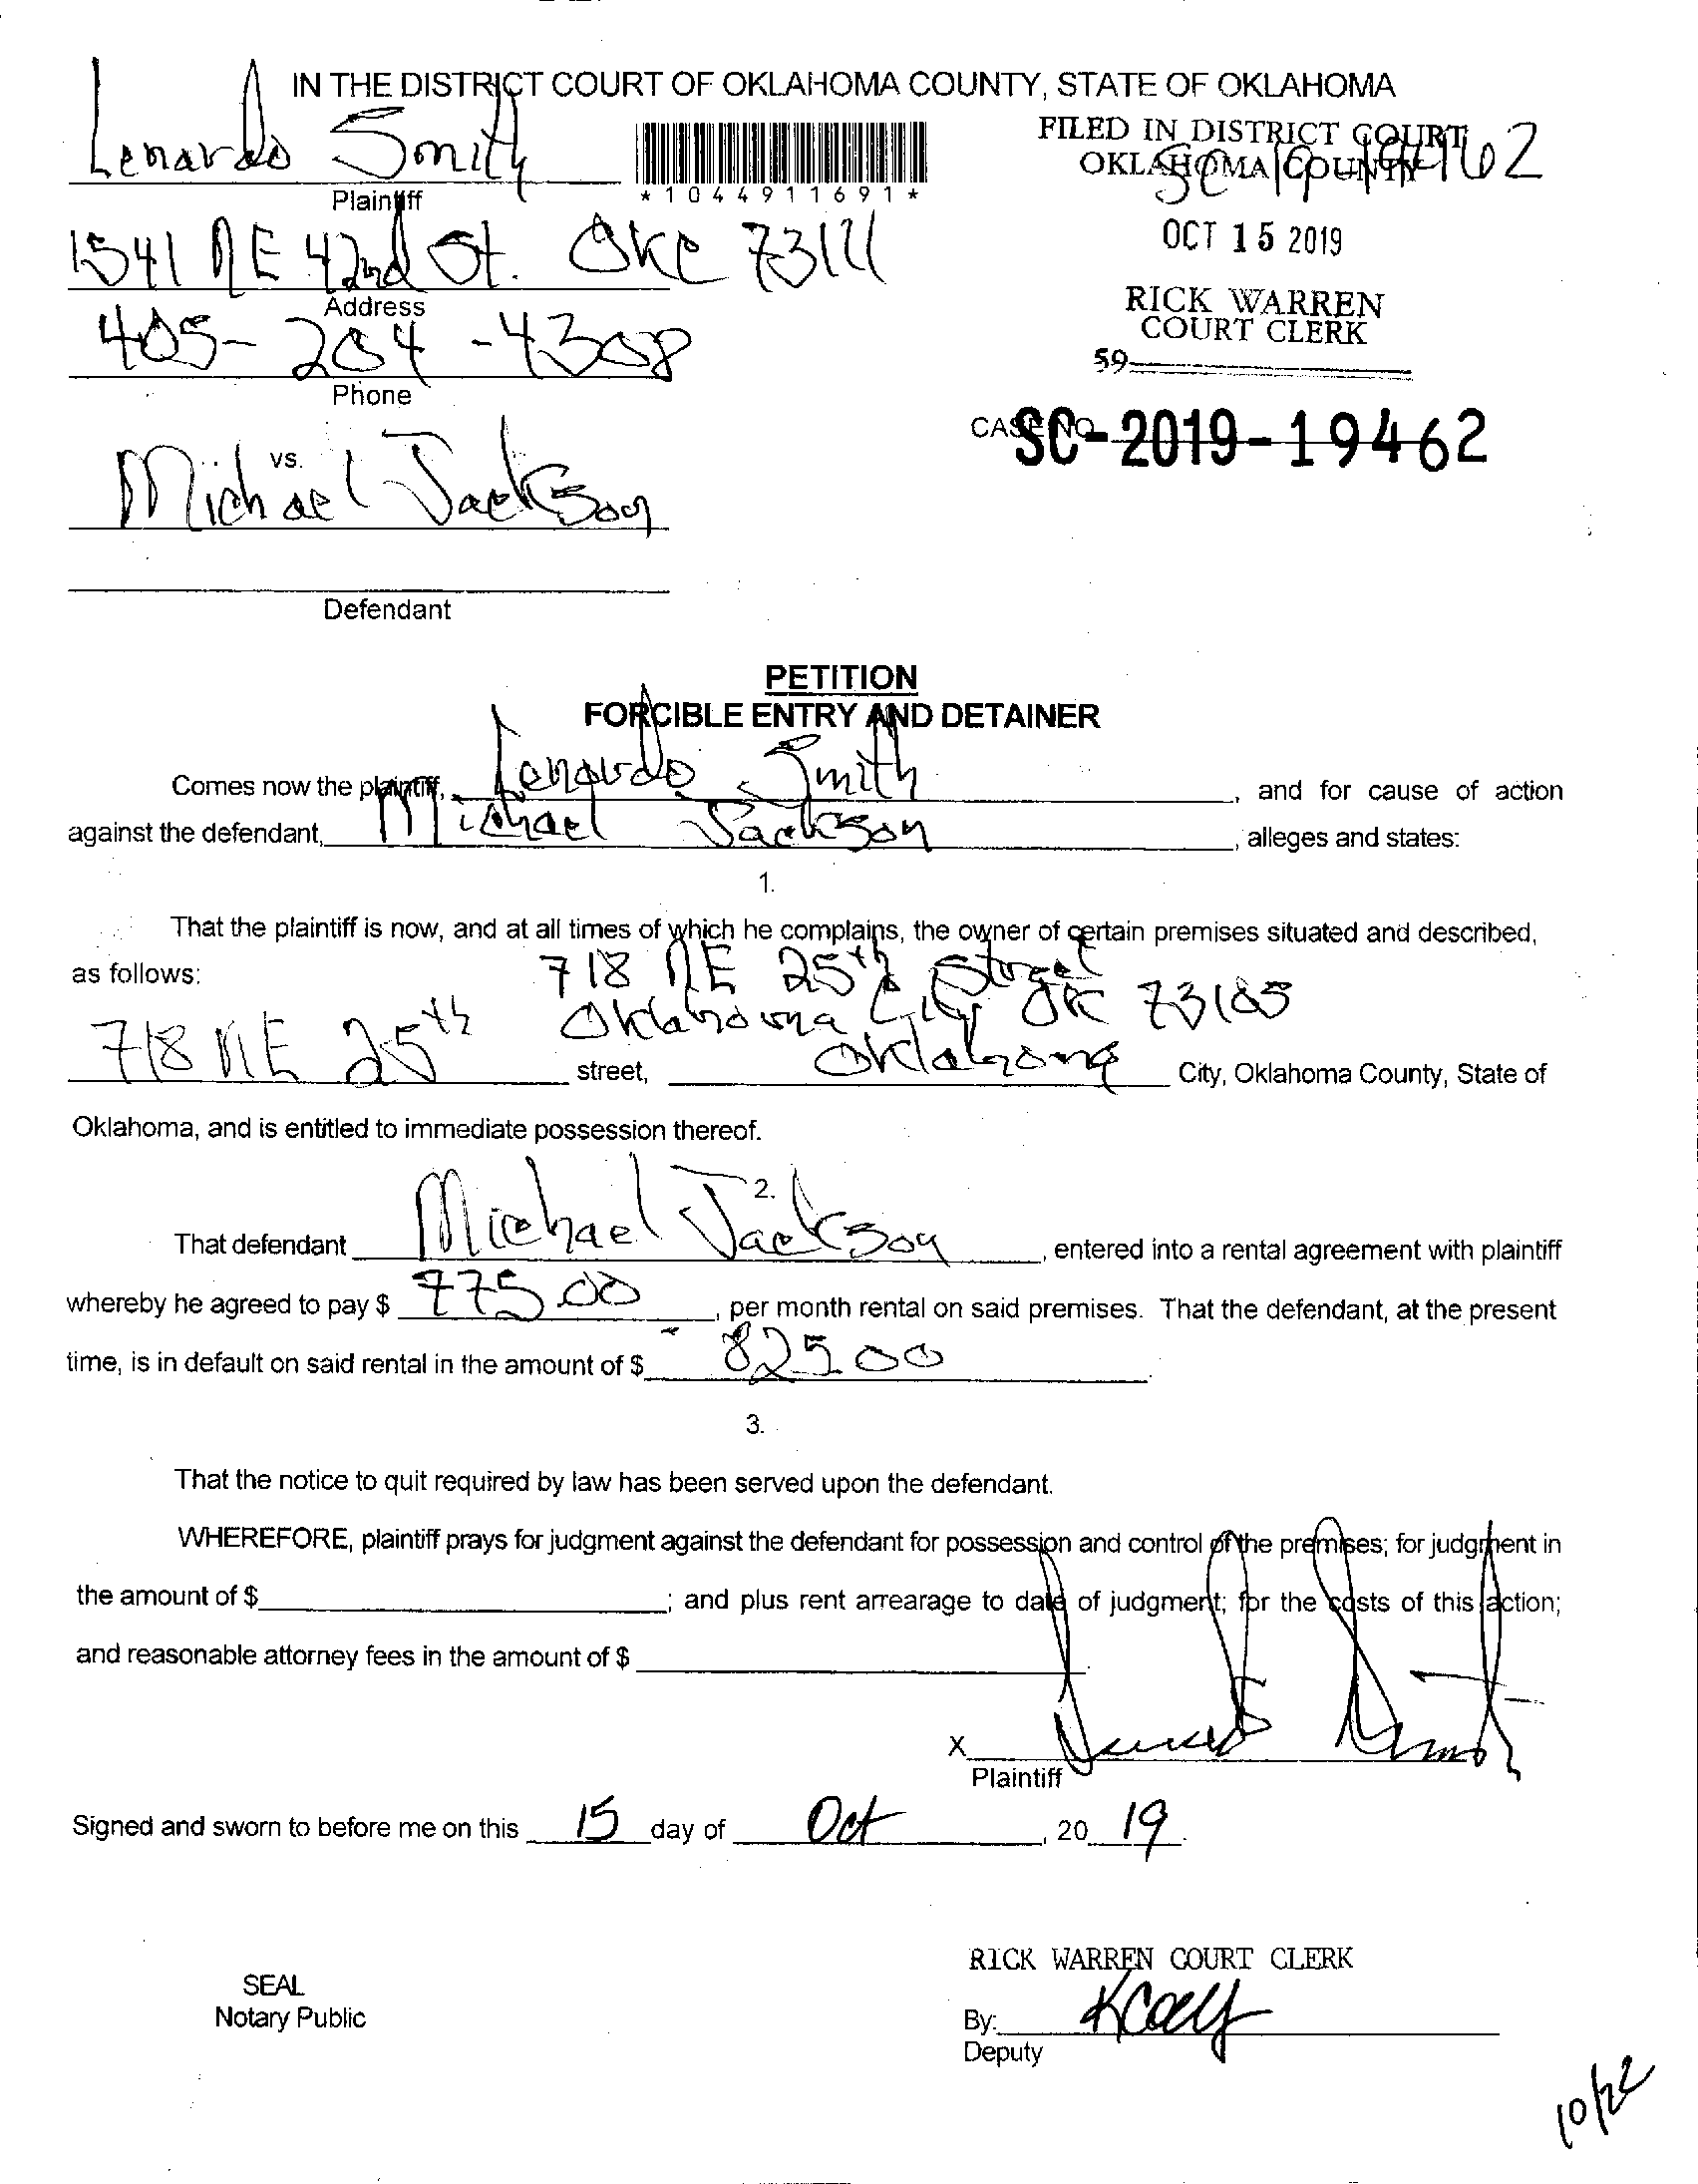 IN THE DISTRICT COURT OF OKLAHOMA COUNTY, STATE OF OKLAHOMA
Lenardo Smith
Plaintiff
*1044911691*
FILED IN DISTRICT COURT
OKLAHOMA COUNTY
SC 19 19462
OCT 15 2019
1541 NE 42nd St. OKC 73111
Address
RICK WARREN
COURT CLERK
59
405-204-4308
Phone
CASE NO. SC-2019-19462
vs.
Michael Jackson
Defendant
PETITION
FORCIBLE ENTRY AND DETAINER
Comes now the plaintiff, Lenardo Smith, and for cause of action
against the defendant, Michael Jackson, alleges and states:
1.
That the plaintiff is now, and at all times of which he complains, the owner of certain premises situated and described,
as follows: 718 NE 25th Street
Oklahoma City OK 73105
718 NE 25th street, Oklahoma City, Oklahoma County, State of
Oklahoma, and is entitled to immediate possession thereof.
2.
That defendant Michael Jackson, entered into a rental agreement with plaintiff
whereby he agreed to pay $ 775.00, per month rental on said premises. That the defendant, at the present
time, is in default on said rental in the amount of $ 825.00.
3.
That the notice to quit required by law has been served upon the defendant.
WHEREFORE, plaintiff prays for judgment against the defendant for possession and control of the premises; for judgment in
the amount of $; and plus rent arrearage to date of judgment; for the costs of this action;
and reasonable attorney fees in the amount of $
X
Plaintiff
Signed and sworn to before me on this 15 day of Oct, 20 19.
RICK WARREN COURT CLERK
SEAL
Notary Public
By:
Deputy
10/22